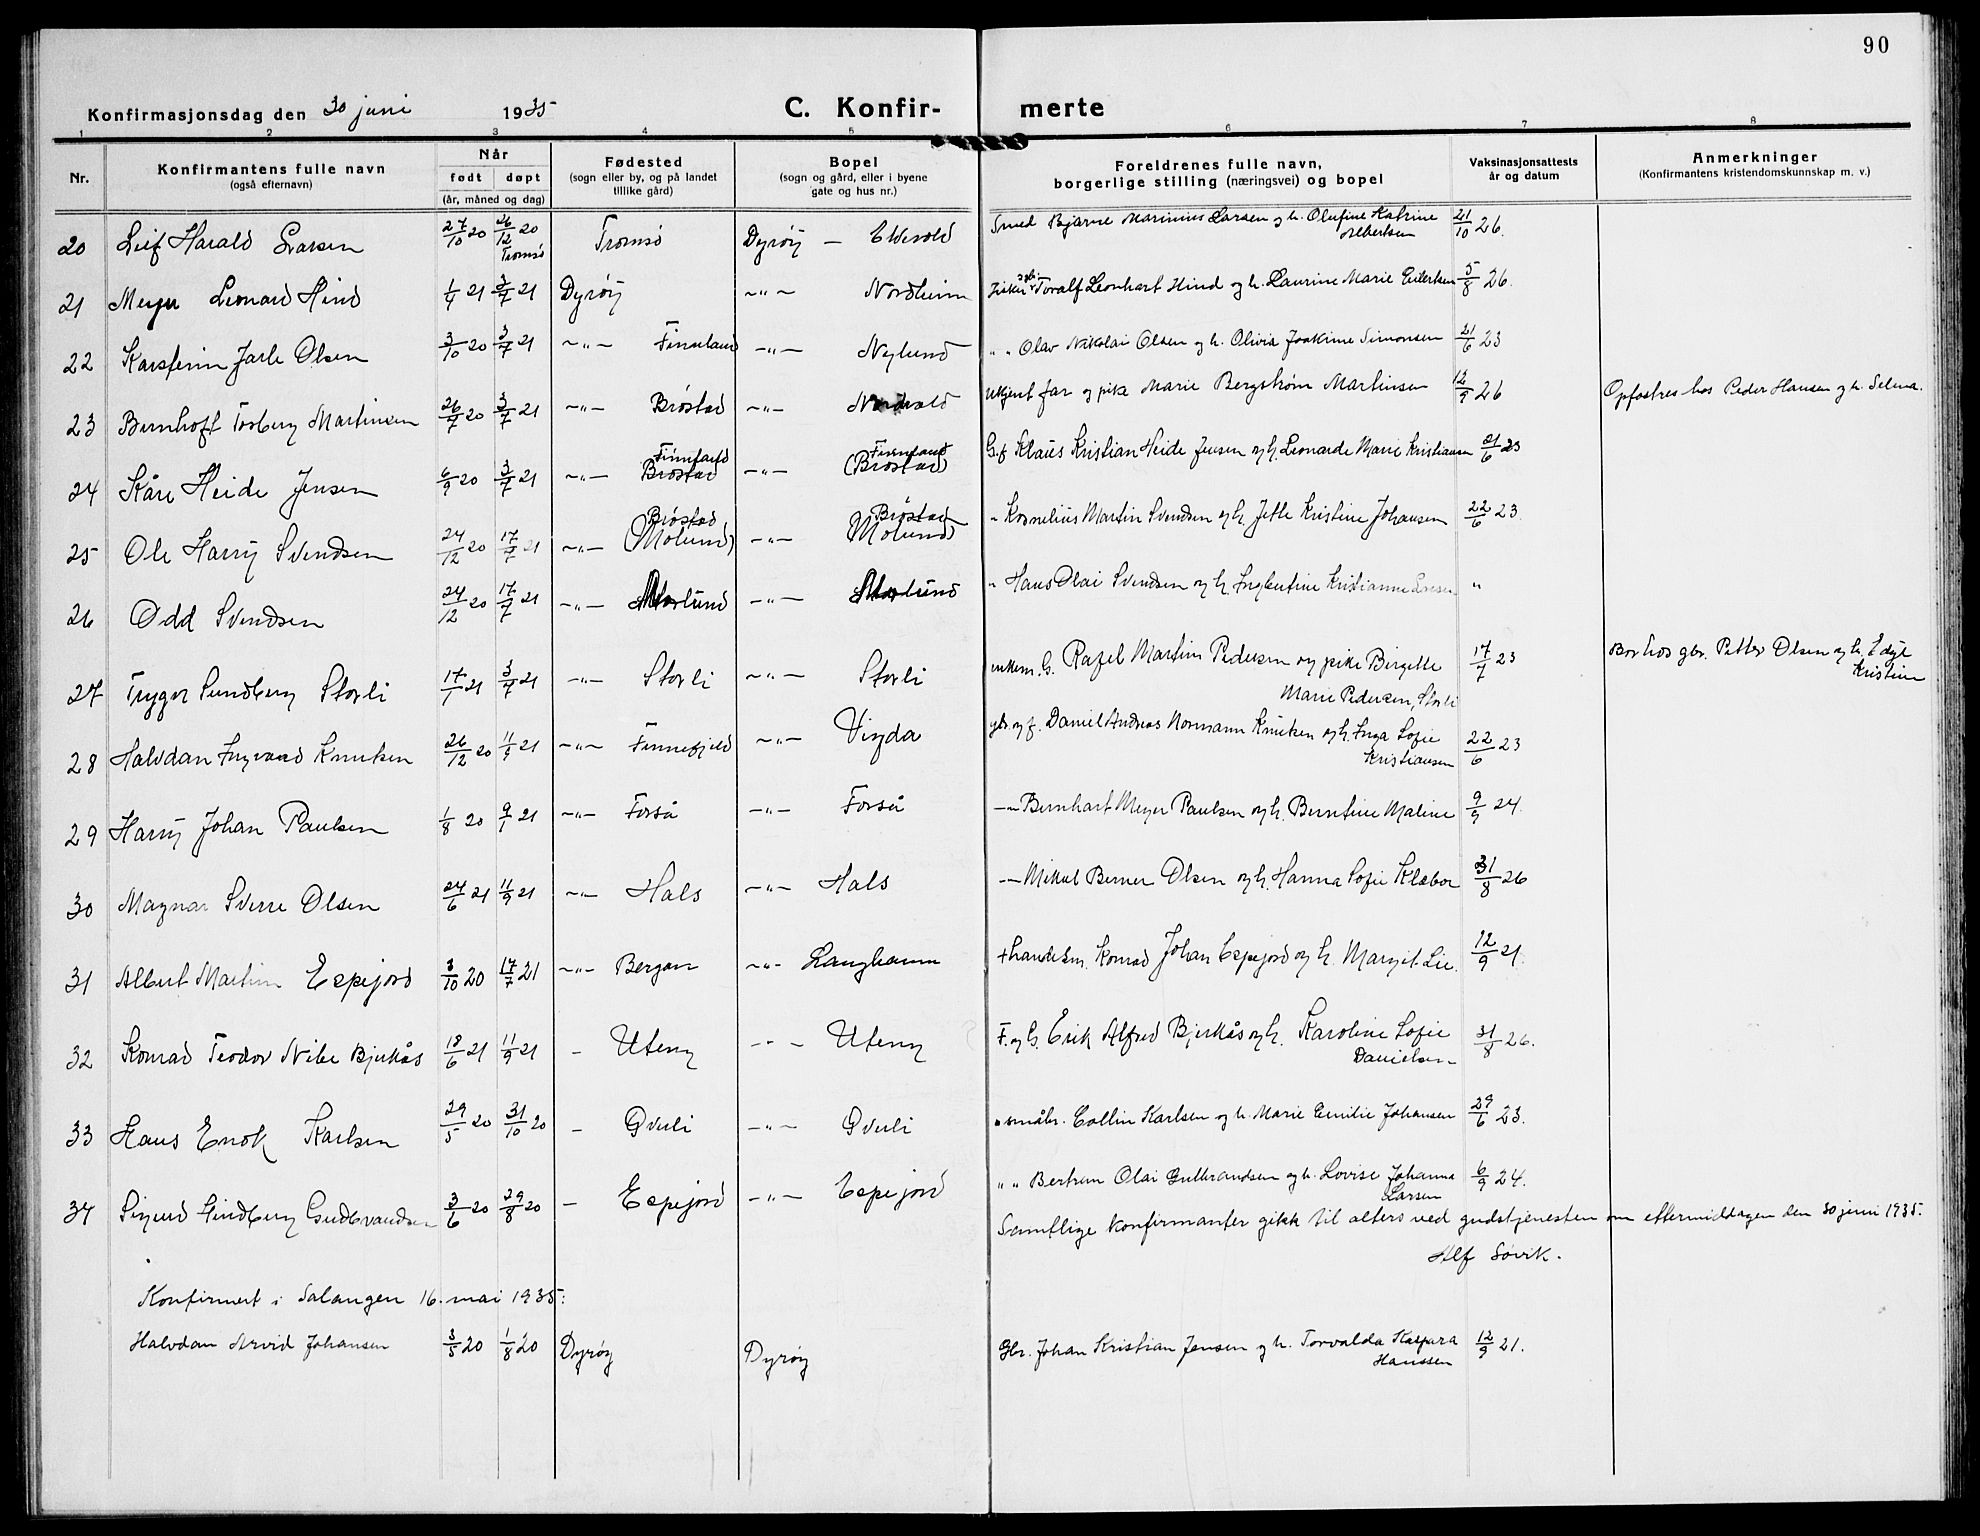 90
Konfirmasjonsdag den 30 juni 1935
C. Konfir- merte
1 2 3 4 5 6 7 8
Nr.
Konfirmantens fulle navn
(også efternavn)
Når
født døpt
(år, måned og dag)
Fødested
(sogn eller by, og på landet
tillike gård)
Bopel
(sogn og gård, eller i byene
gate og hus nr.)
Foreldrenes fulle navn,
borgerlige stilling (næringsvei) og bopel
Vaksinasjonsattests
år og datum
Anmerkninger
(Konfirmantens kristendomskunnskap m. v.)
20 Leif Harald Larsen 27/10 20 26/12 20 Tromsø Tromsø Dyrøy — Smed Bjarne Marinius Larsen og h. Olufine Katrine Albertsen 21/10 26.
21 Meyer Leonard Hind 1/4 21 3/7 21 Dyrøy —"— Nordheim Fisker Toralf Leonhart Hind og h. Laurine Marie Eilertsen 5/8 26.
22 Karstein Jarle Olsen 3/10 20 3/7 21 —"— Finnland —"— Nylund " " Olav Nikolai Olsen og h. Olivia Joakime Simonsen 21/6 23
23 Bernhoft Torberg Martinsen 26/7 20 3/7 21 —"— Brøstad —"— Nordvold Ukjent far og pike Marie Bergstrøm Martinsen 12/9 26 Opfostres hos Peder Hansen og h. Selma.
24 Kåre Heide Jensen 6/9 20 3/7 21 —"— Finnland Brøstad —"— Finnland (Brøstad) G.f Klaus Kristian Heide Jensen og h. Leonarde Marie Kristiansen 21/6 23
25 Ole Harry Svendsen 24/12 20 17/7 21 —"— Brøstad (Molund) —"— Brøstad (Molund) " Kornelius Martin Svendsen og h. Jette Kristine Johansen 22/6 23.
26 Odd Svendsen 24/12 20 17/7 21 —"— —"— " Hans Olai Svendsen og h. Ingbertine Kristianne "
27 Trygve Sundberg Storli 17/1 21 3/7 21 —"— Storli —"— Storli enkem. G. Rafel Martin Pedersen og pike Birgitte Marie Pedersen, Storli 17/7 23 Bor hos gbr. Petter Olsen og h. Kristine
28 Halvdan Ingvard Knutsen 26/12 20 11/9 21 —"— Finnefjeld —"— Vinda gbr. og f. Daniel Andreas Normann Knutsen og h. Inga Sofie Kristiansen 22/6 23
29 Harry Johan Paulsen 1/8 20 9/1 21 —"— Forså —"— Forså —"— Bernhart Meyer Paulsen og h. Berntine Maline 9/9 24.
30 Magnar Sverre Olsen 24/6 21 11/9 21 —"— Hals —"— Hals —"— Mikal Berner Olsen og h. Hanna Sofie Klæbor 31/8 26
31 Albert Martin Espejord 3/10 20 17/7 21 —"— Bergan —"— Langhamn + handelsm. Konrad Johan Espejord og h. Margit Lie. 12/9 21.
32 Konrad Teodor Bjerkås 18/6 21 11/9 21 — Uteny —"— Uteny F. og G. Erik Alfred Bjerkås og h. Karoline Sofie Danielsen 31/8 26.
33 Hans Enok Karlsen 29/5 20 31/10 20 — Gverli —"— Gverli " småbr. Collin Karlsen og h. Marie Emilie Johansen 29/6 23.
34 Sigurd Lindberg Gudbrandsen 3/6 20 29/8 20 — Espejord —"— Espejord " " Bertrum Olai Gulbrandsen og h. Lovise Johanna Larsen 6/9 24.
Samtlige konfirmanter gikk til alters ved gudstjenesten om eftermiddagen den 30 juni 1935.
Alf Søvik.
Konfirmert i Salangen 16. mai 1935:
Halvdan Arvid Johansen 3/5 20 1/8 20 Dyrøy Dyrøy Gbr. Johan Kristian Jensen og h. Torvalda Kaspara Hanssen 12/9 21.